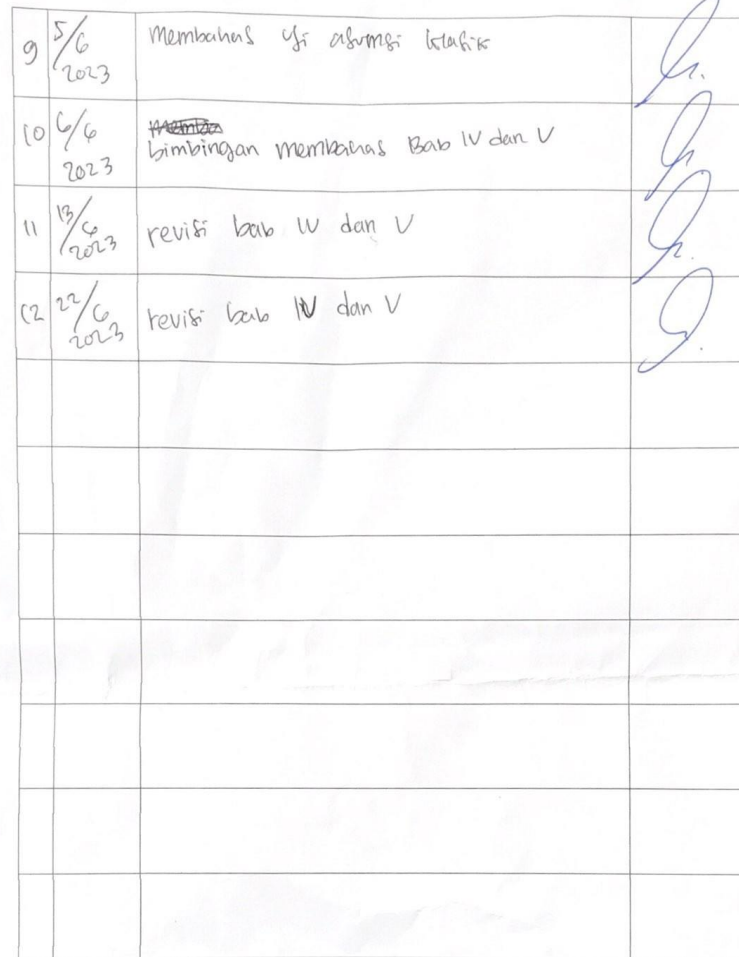 9 5/6 2023 Membahas uji asumsi klasik
10 6/6 2023 bimbingan membahas Bab IV dan V
11 13/6 2023 revisi bab IV dan V
12 22/6 2023 revisi bab IV dan V